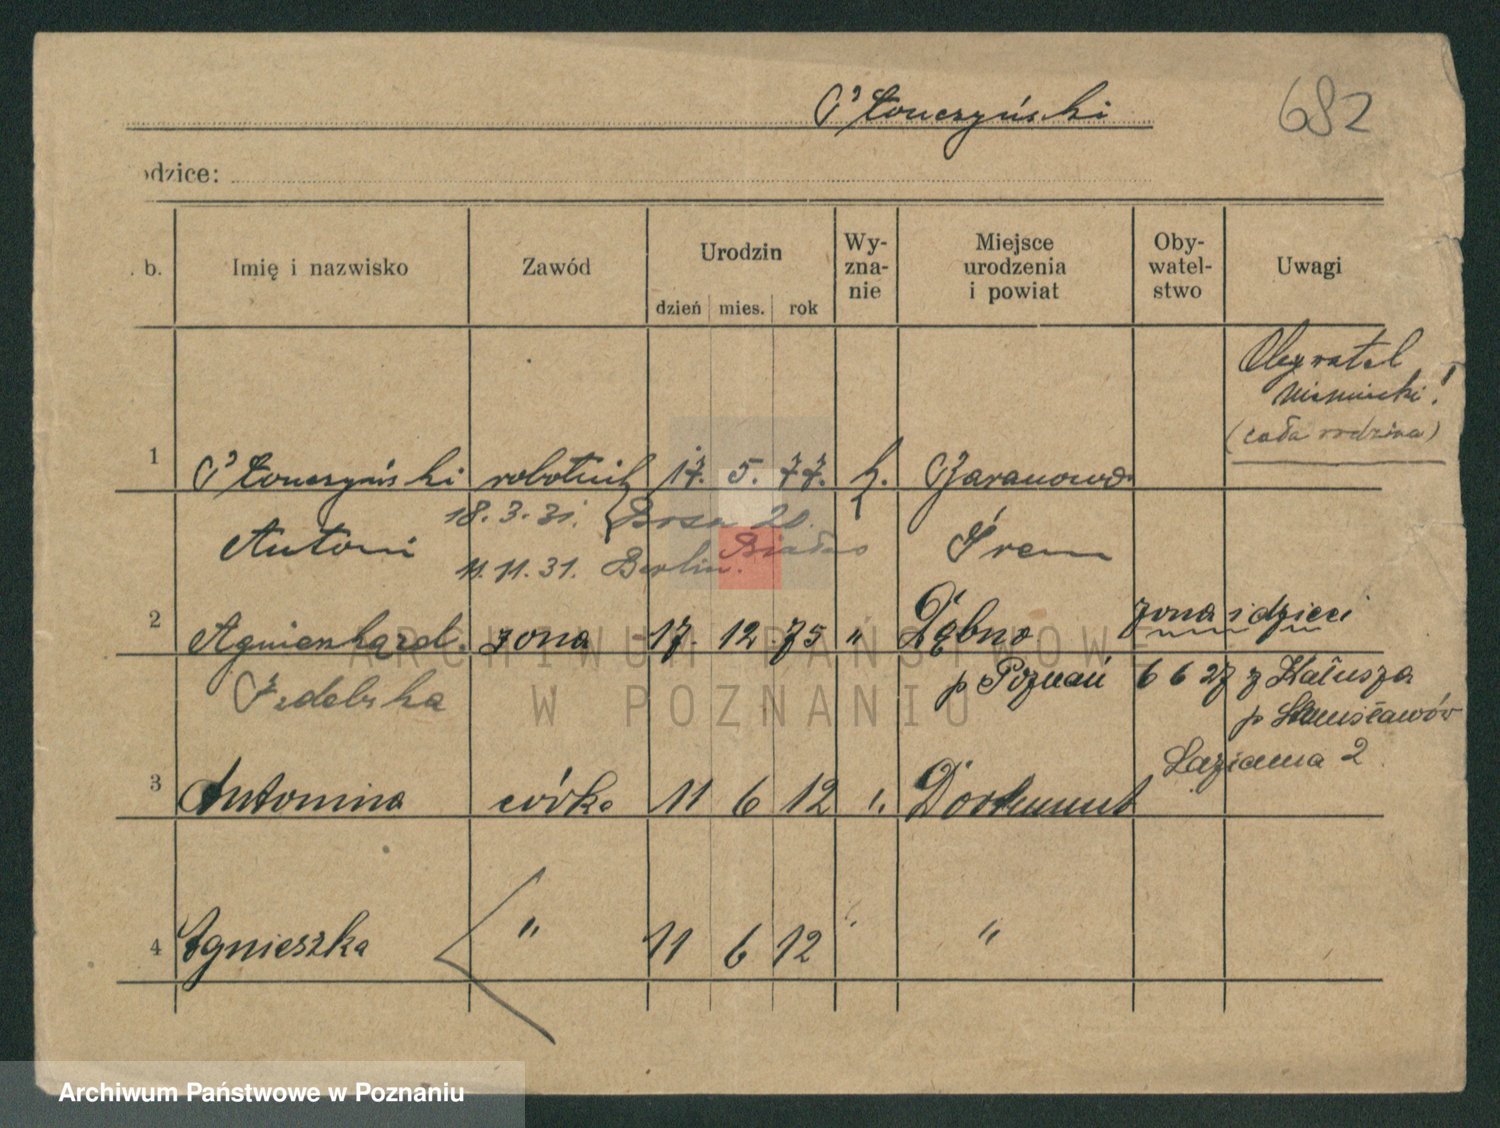 Płonczyński 682
odzice:
. b. Imię i nazwisko Zawód Urodzin Wyznanie Miejsce urodzenia i powiat Obywatelstwo Uwagi
dzień mies. rok
Obywatel
niemiecki!
(cała rodzina)
1 Płonczyński robotnik 17. 5. 77. k. Baranowo
Antoni 18. 3. 31. 20. Śrem
11. 11. 31. Berlin.
2 żona 17. 12. 75 " Dębno żona i dzieci
p Poznań 6 6 27 z Kałusza
p Stanisławów
Łazienna 2
3 Antonina córka 11 6 12 " Dortmunt
4 Agnieszka " 11 6 12 " "
ARCHIWUM PAŃSTWOWE
W POZNANIU
Archiwum Państwowe w Poznaniu